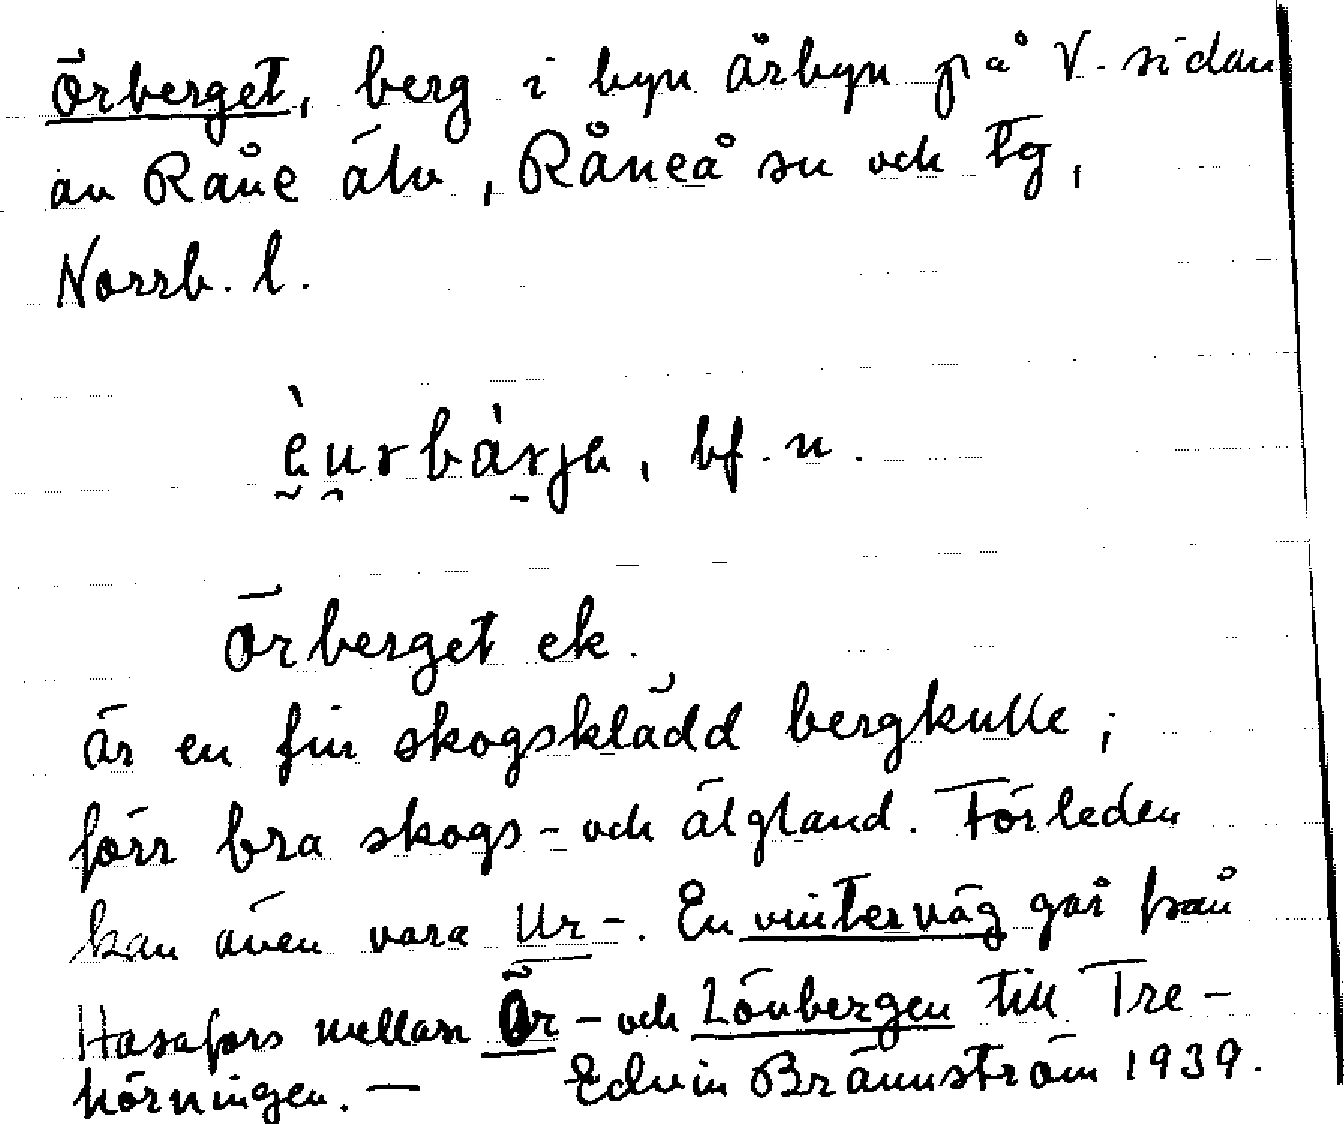 Örberget, berg i byn Årbyn på V. sidan
av Råne älv, Råneå sn och tg,
Norrb. l.
èu̯rbàrjə, bf. n.
Örberget ek.
är en fin skogsklädd bergkulle,
förr bra skogs- och älgland. Förleden
kan även vara Ur-. En vinterväg går från
Hasafors mellan Ör- och Lönbergen till Tre-
hörningen. — Edvin Brännström 1939.